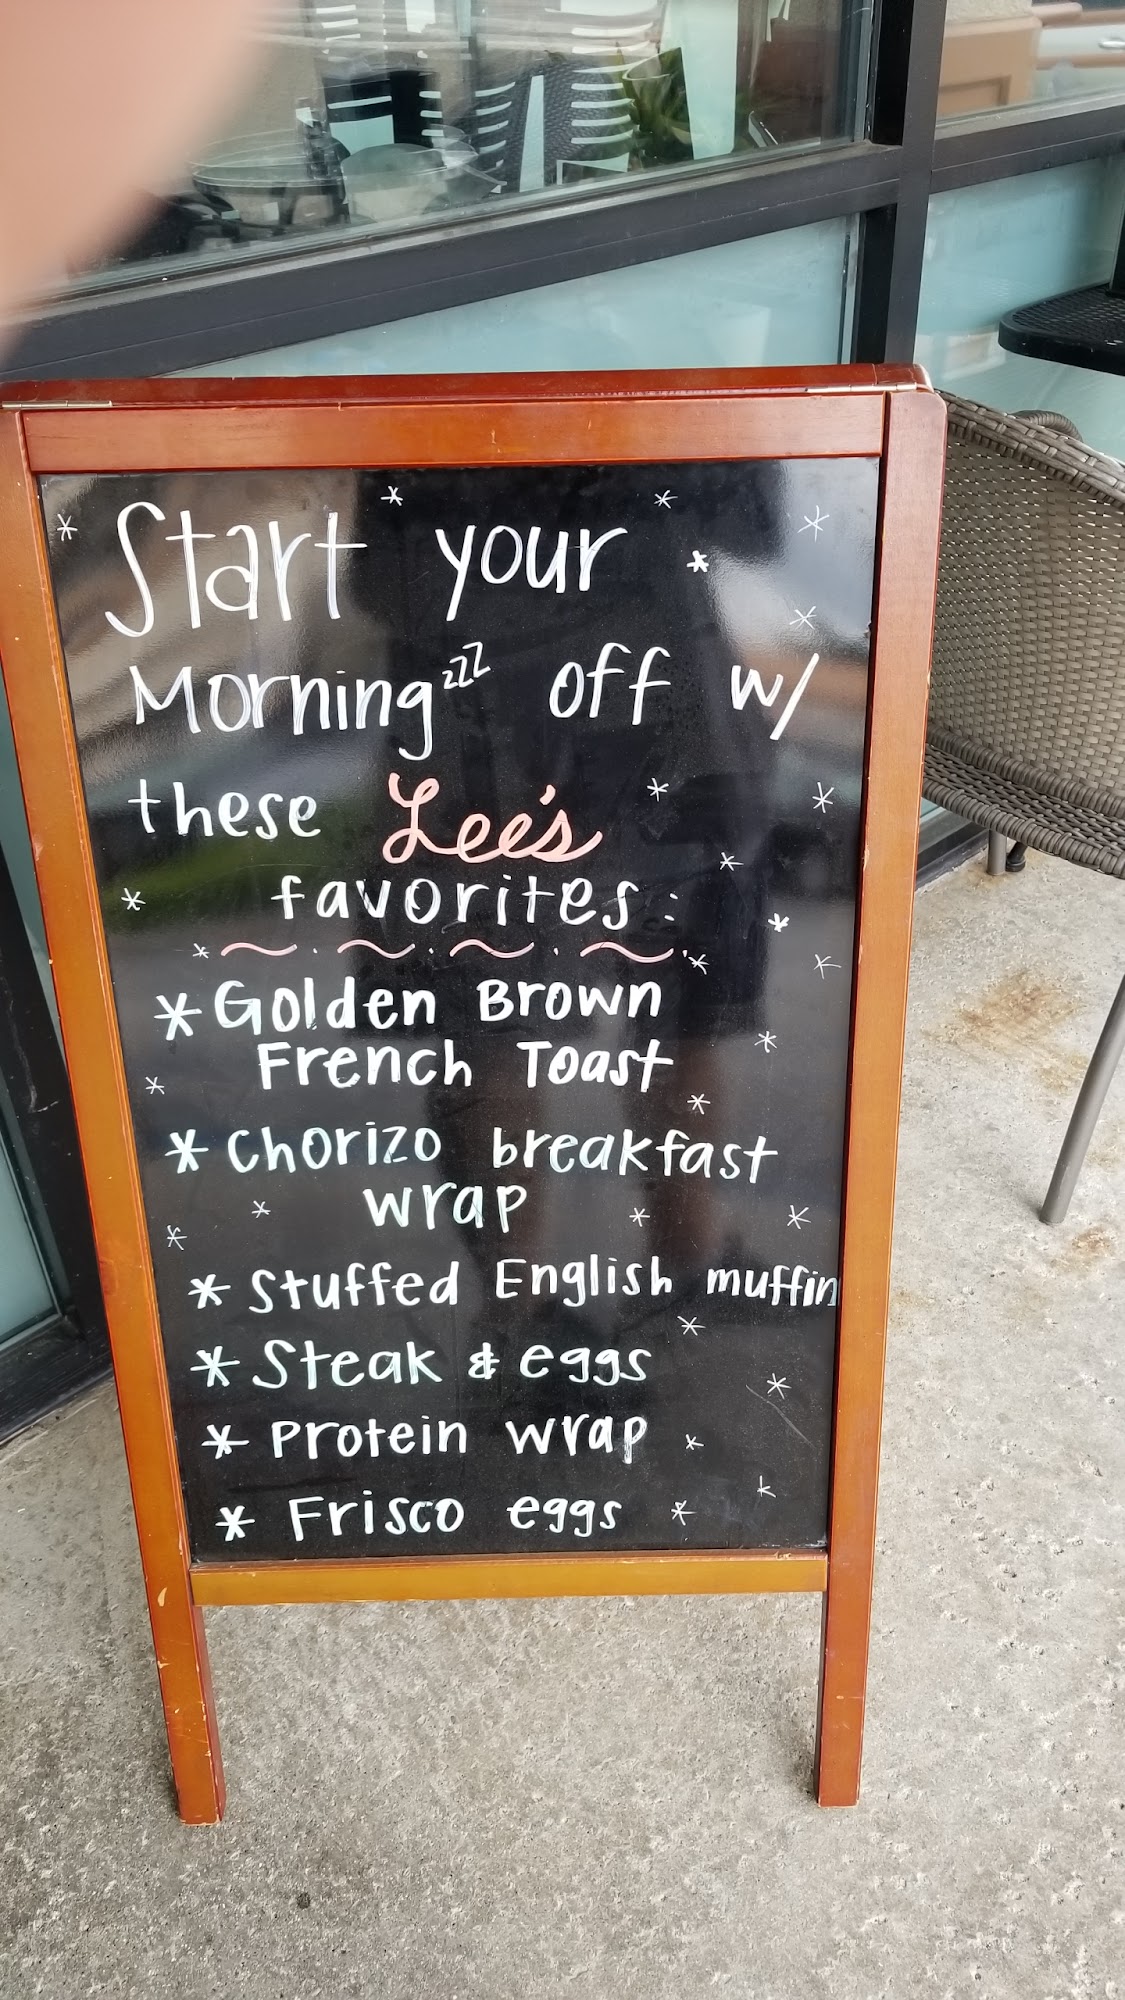 Start your
Morningzzz off w/
these Lee's
favorites:
* Golden Brown
French Toast
* Chorizo breakfast
wrap
* Stuffed English muffin
* Steak & eggs
* Protein wrap
* Frisco eggs